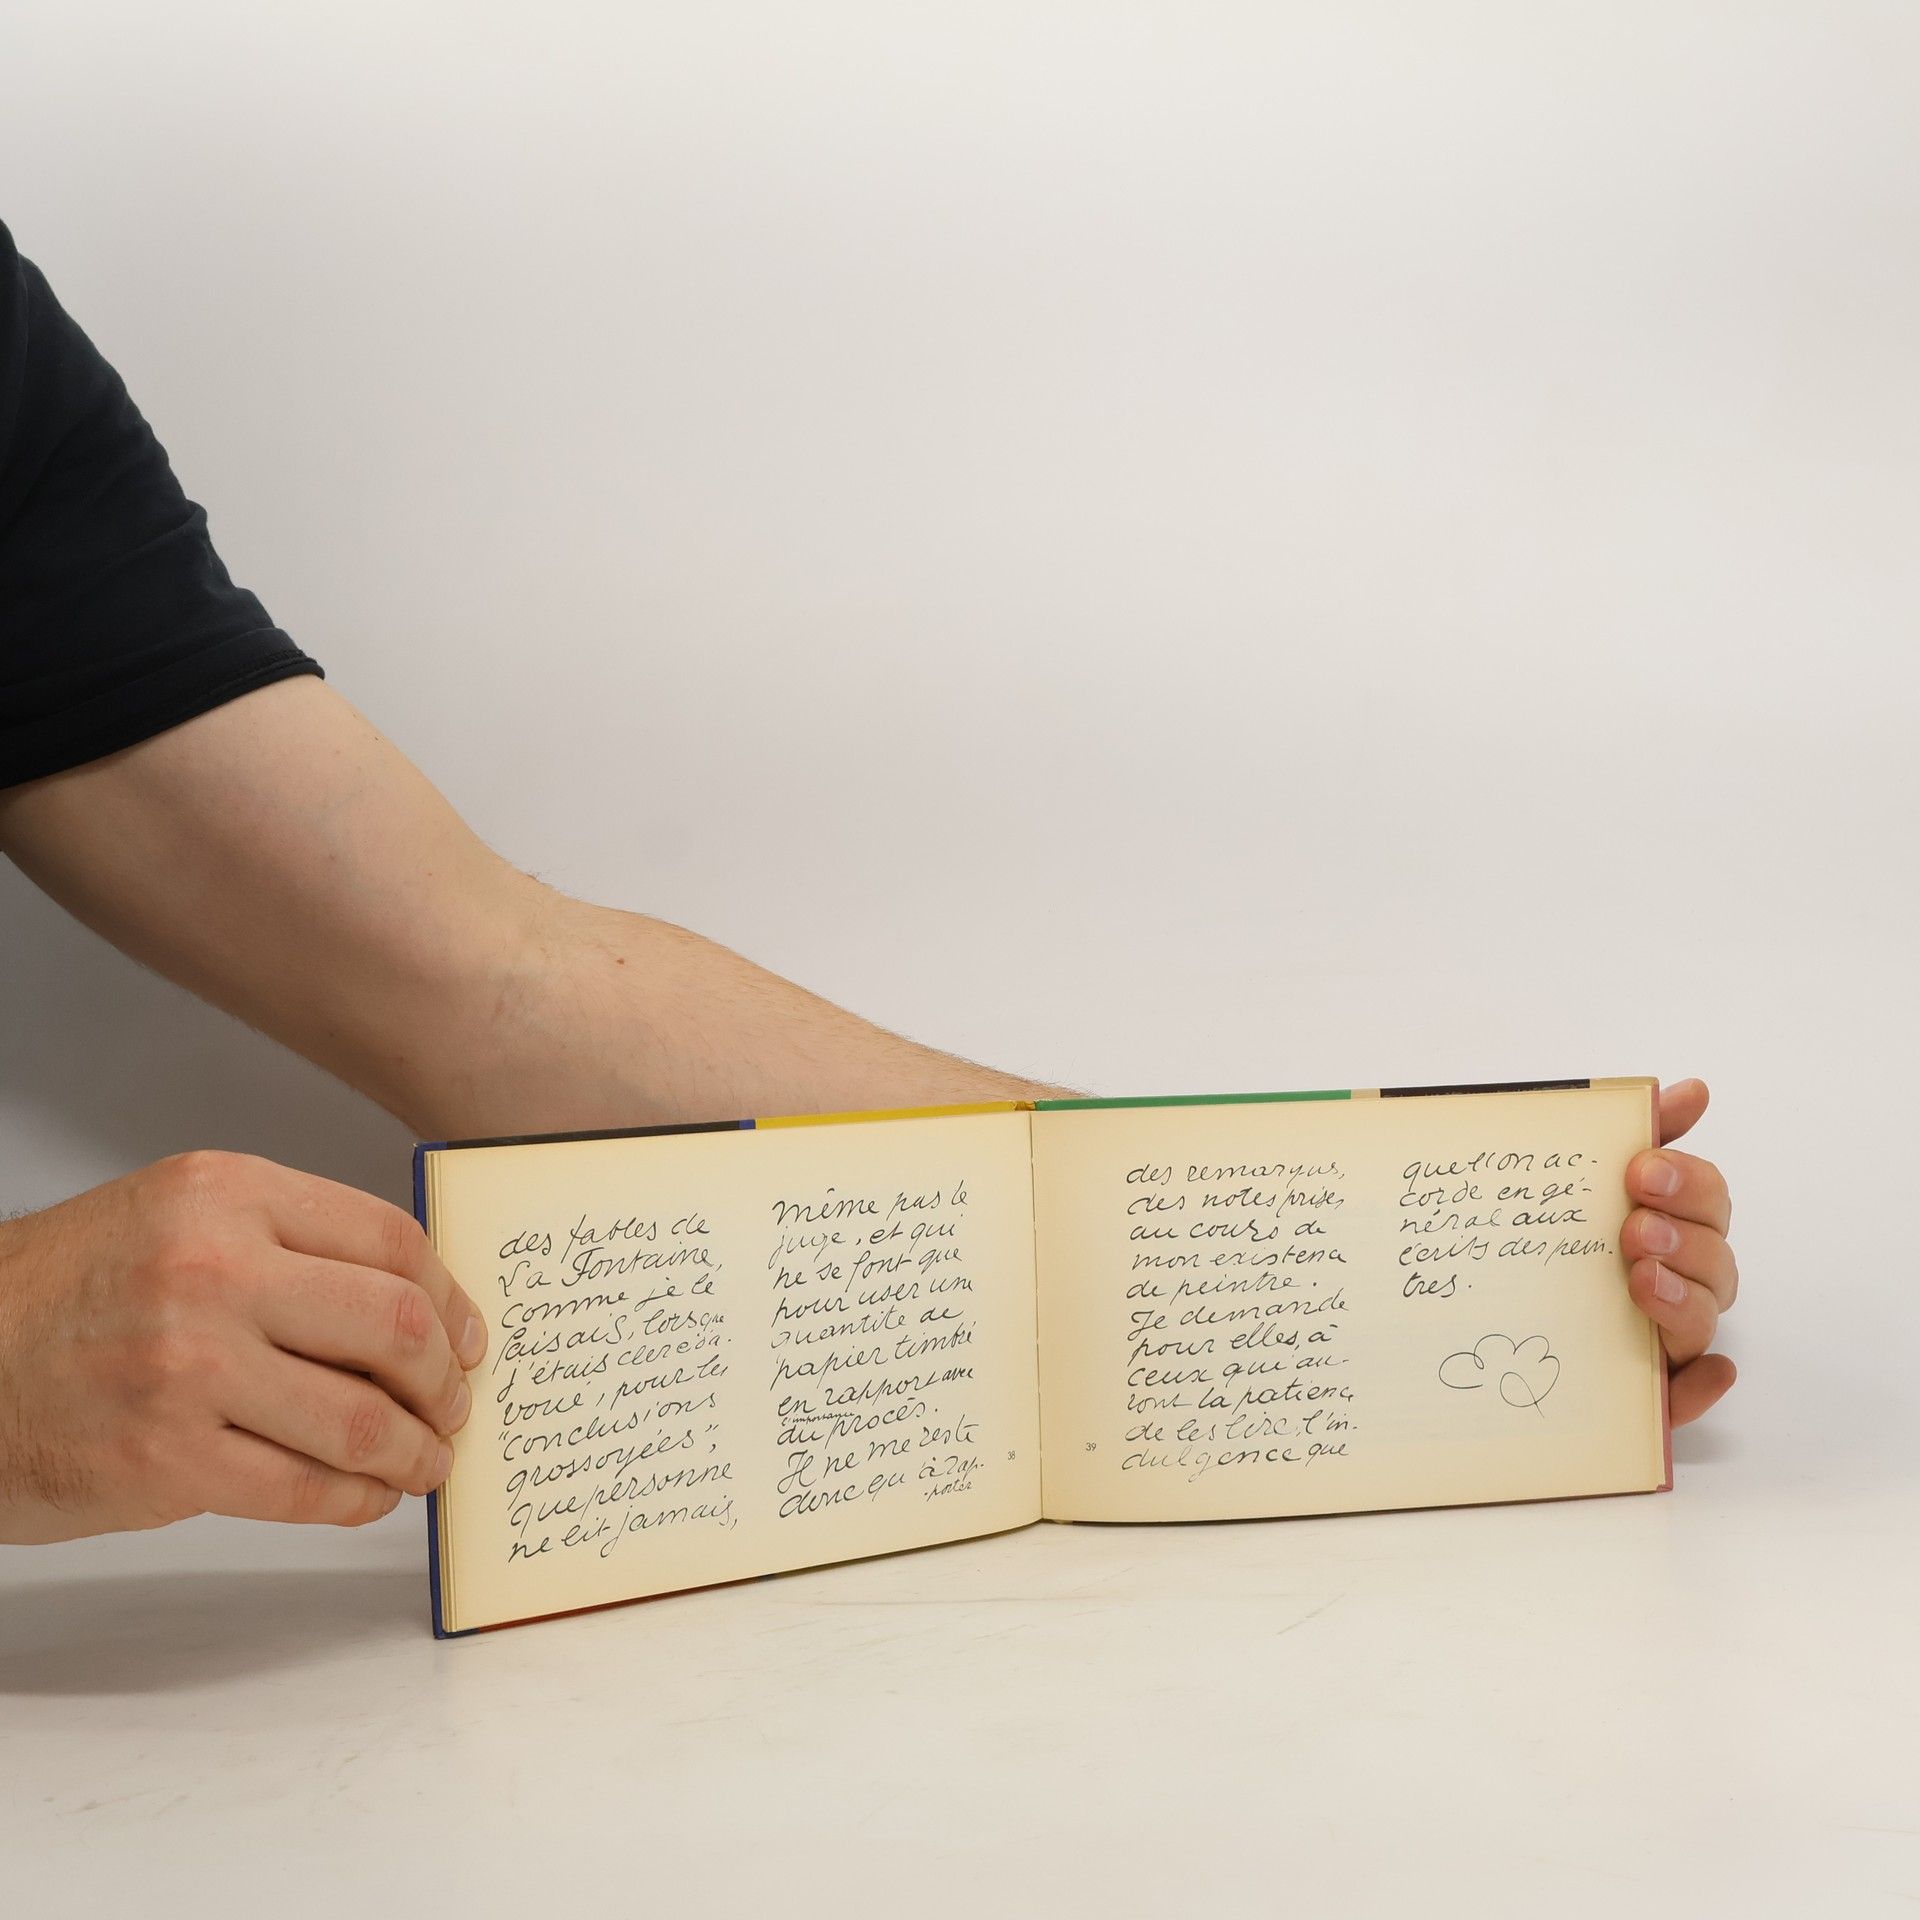 des fables de
La Fontaine,
comme je le
faisais, lorsque
j'étais clerc d'a-
voué, pour les
"conclusions
grossoyées",
que personne
ne lit jamais,
même pas le
juge, et qui
ne se font que
pour user une
quantité de
papier timbré
en rapport avec
l'importance
du procès.
Il ne me reste
donc qu'à rap-
-porter
38
des remarques,
des notes prises
au cours de
mon existence
de peintre.
Je demande
pour elles, à
ceux qui au-
ront la patience
de les lire, l'in-
dulgence que
39
que l'on ac-
corde en gé-
néral aux
écrits des pein-
tres.